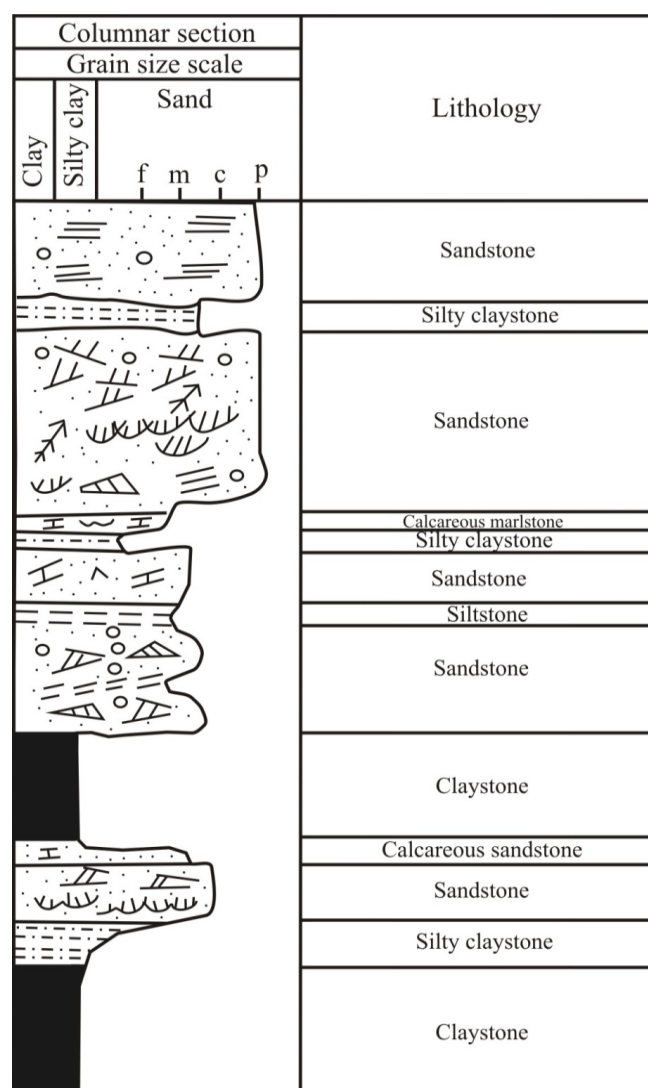 Columnar section
Grain size scale
Clay
Silty clay
Sand
f m c p
Lithology
Sandstone
Silty claystone
Sandstone
Calcareous marlstone
Silty claystone
Sandstone
Siltstone
Sandstone
Claystone
Calcareous sandstone
Sandstone
Silty claystone
Claystone